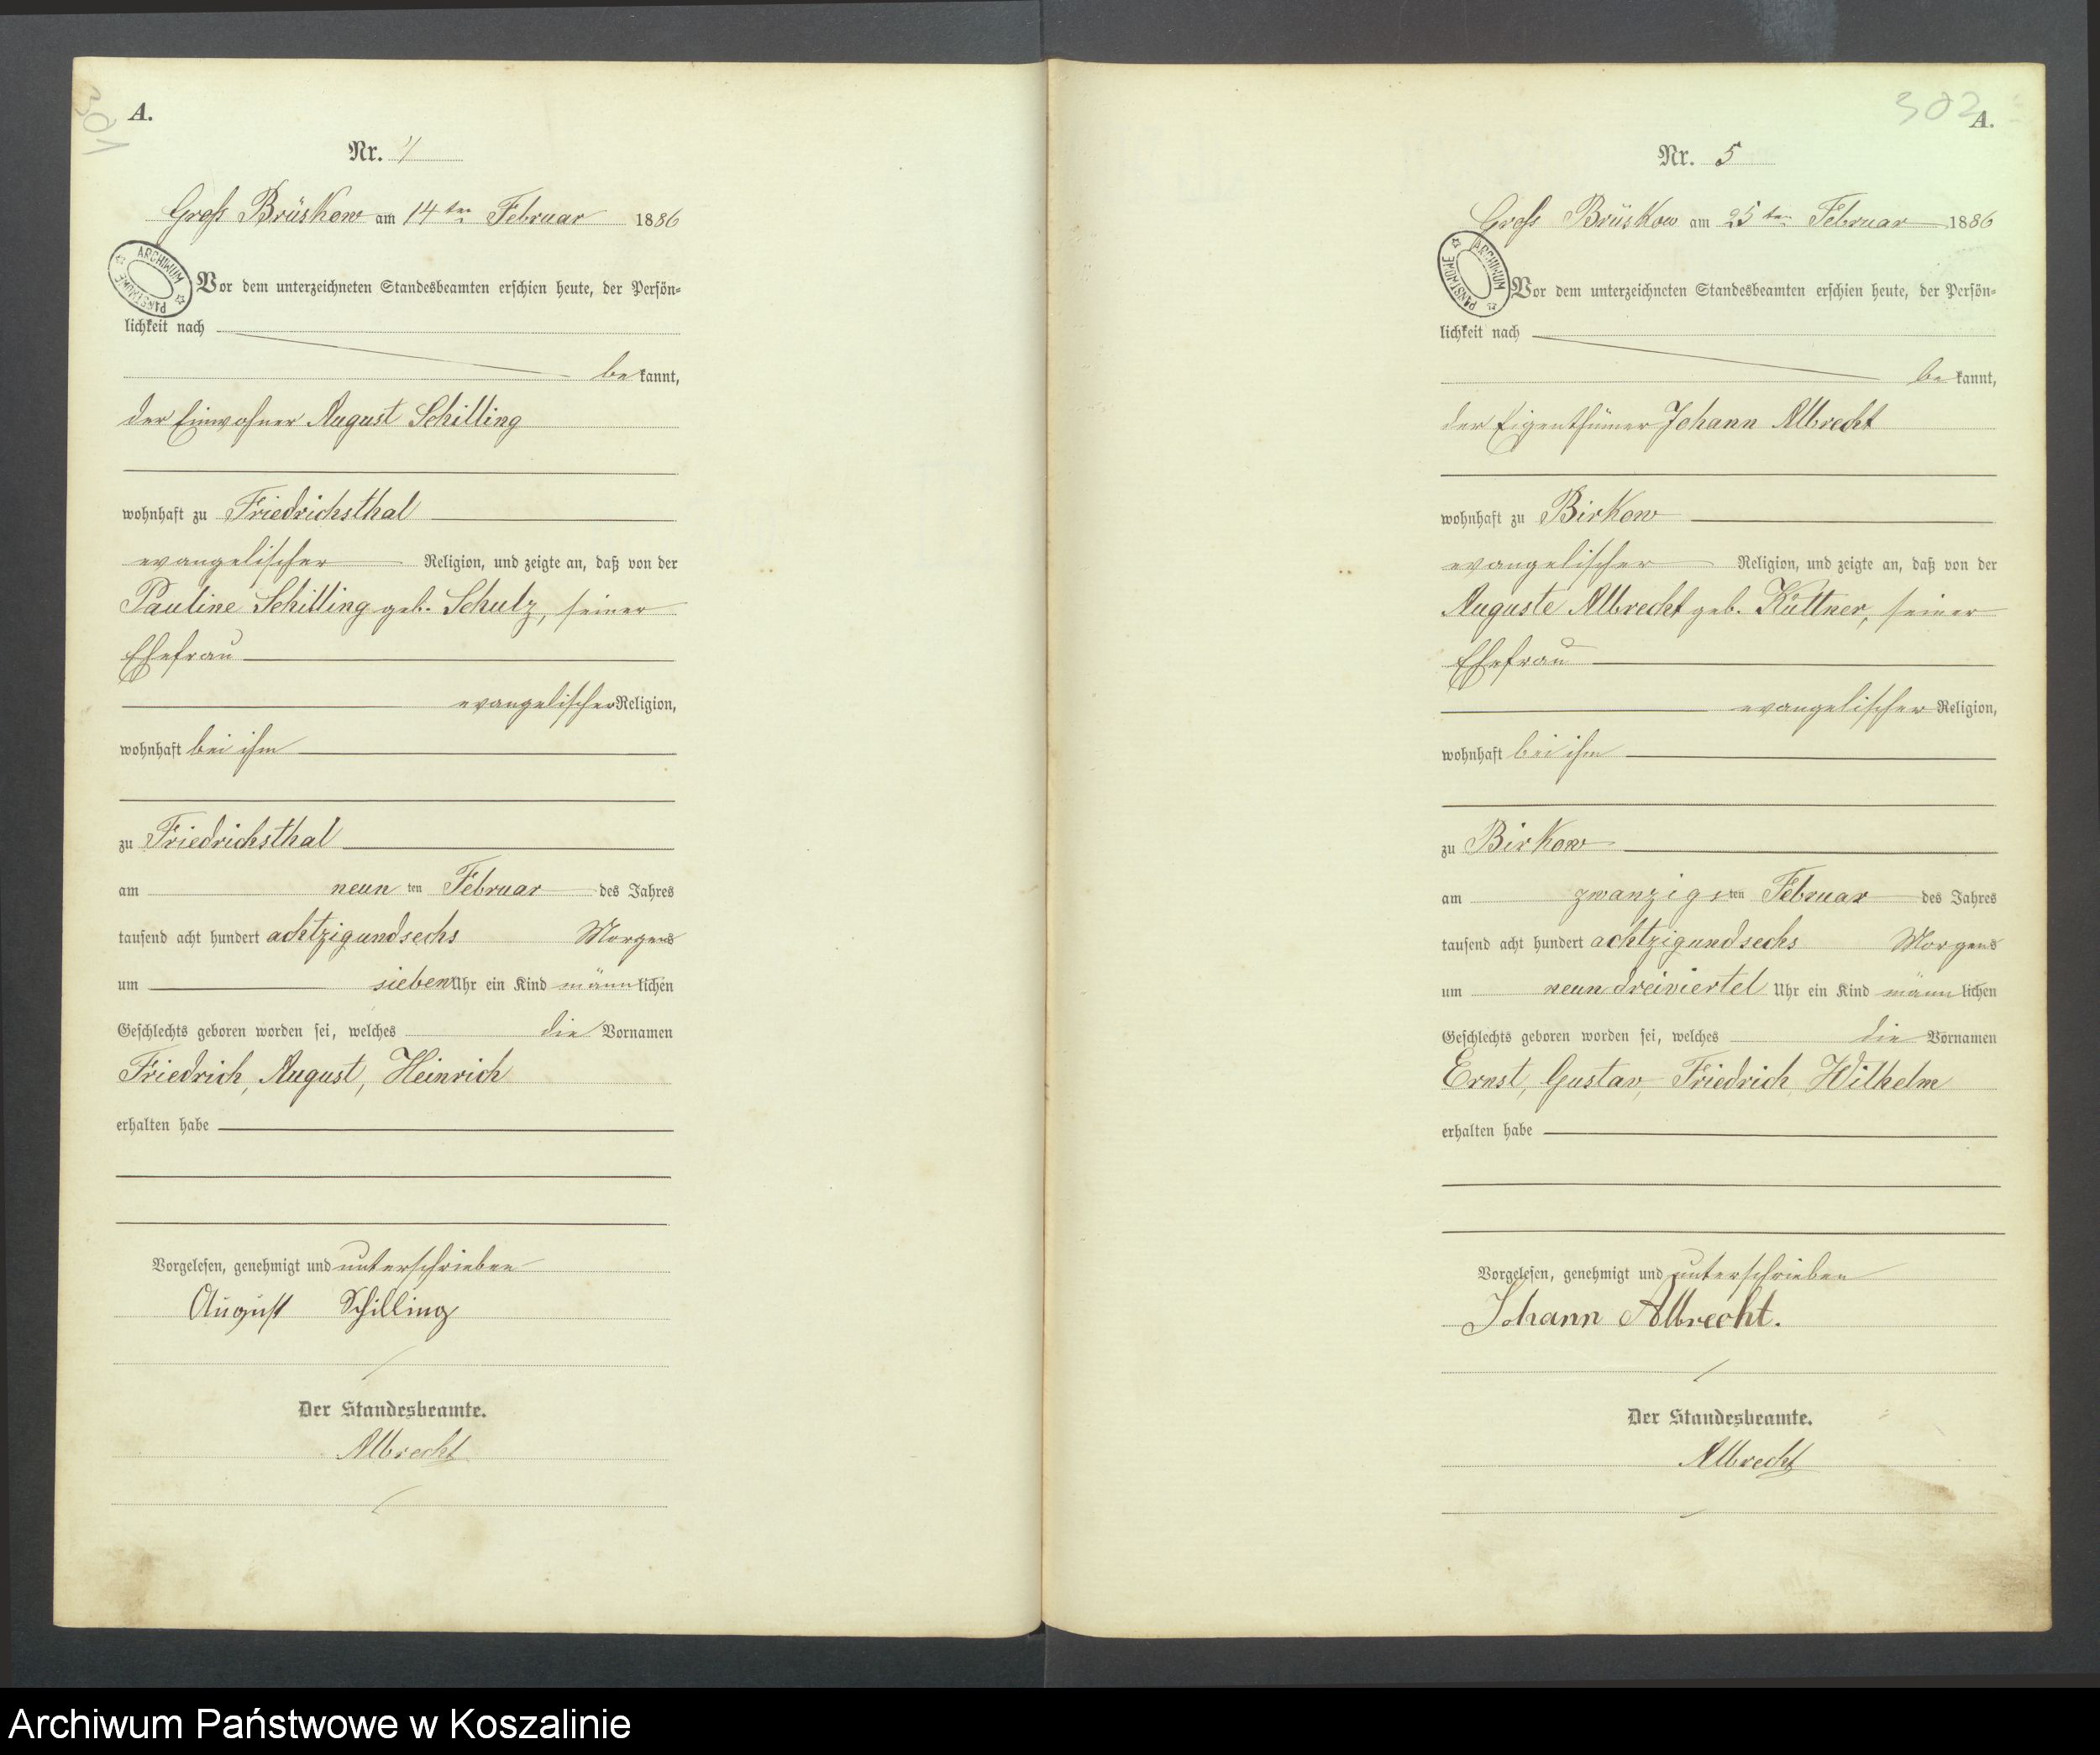 301
A.
Nr. 4
Groß Brüskow am 14ten Februar 1886
ARCHIWUM PAŃSTWOWE
Vor dem unterzeichneten Standesbeamten erschien heute, der Persön=
lichkeit nach
bekannt,
der Einwohner August Schilling
wohnhaft zu Friedrichsthal
evangelischer Religion, und zeigte an, daß von der
Pauline Schilling geb. Schulz, seiner
Ehefrau
evangelischer Religion,
wohnhaft bei ihm
zu Friedrichsthal
am neun ten Februar des Jahres
tausend acht hundert achtzigundsechs Morgens
um sieben Uhr ein Kind männlichen
Geschlechts geboren worden sei, welches die Vornamen
Friedrich, August, Heinrich
erhalten habe
Vorgelesen, genehmigt und unterschrieben
August Schilling
Der Standesbeamte.
Albrecht
302
A.
Nr. 5
Groß Brüskow am 25ten Februar 1886
ARCHIWUM PAŃSTWOWE
Vor dem unterzeichneten Standesbeamten erschien heute, der Persön=
lichkeit nach
bekannt,
der Eigenthümer Johann Albrecht
wohnhaft zu Birkow
evangelischer Religion, und zeigte an, daß von der
Auguste Albrecht geb. Küttner, seiner
Ehefrau
evangelischer Religion,
wohnhaft bei ihm
zu Birkow
am zwanzigsten Februar des Jahres
tausend acht hundert achtzigundsechs Morgens
um neun dreiviertel Uhr ein Kind männlichen
Geschlechts geboren worden sei, welches die Vornamen
Ernst, Gustav, Friedrich, Wilhelm
erhalten habe
Vorgelesen, genehmigt und unterschrieben
Johann Albrecht.
Der Standesbeamte.
Albrecht
Archiwum Państwowe w Koszalinie